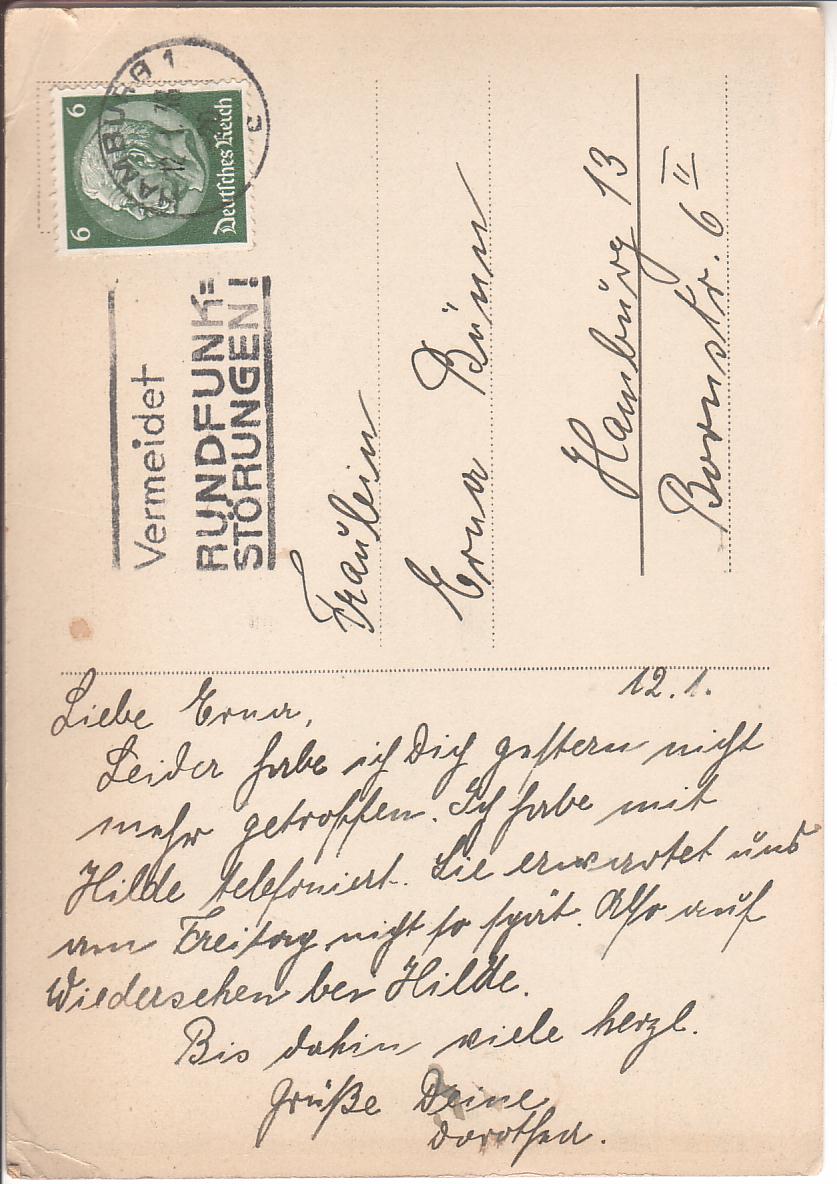 HAMBURG 1
12.1.
c
6
6
Deutsches Reich
Vermeidet
RUNDFUNK=
STÖRUNGEN!
Fräulein
Erna Bünn
Hamburg 13
Bornstr. 6 II
12.1.
Liebe Erna,
Leider habe ich Dich gestern nicht
mehr getroffen. Ich habe mit
Hilde telefoniert. Sie erwartet uns
am Freitag nicht so spät. Also auf
Wiedersehen bei Hilde.
Bis dahin viele herzl.
Grüße Deine
Dorothea.